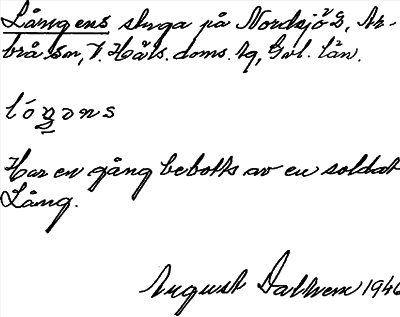 Långens stuga på Nordsjö 2 8, Ar-
brå sn, V. Häls. doms. sg, Gvl. län.
Har en gång bebotts av en soldat
Lång.
August Dalhem 1946